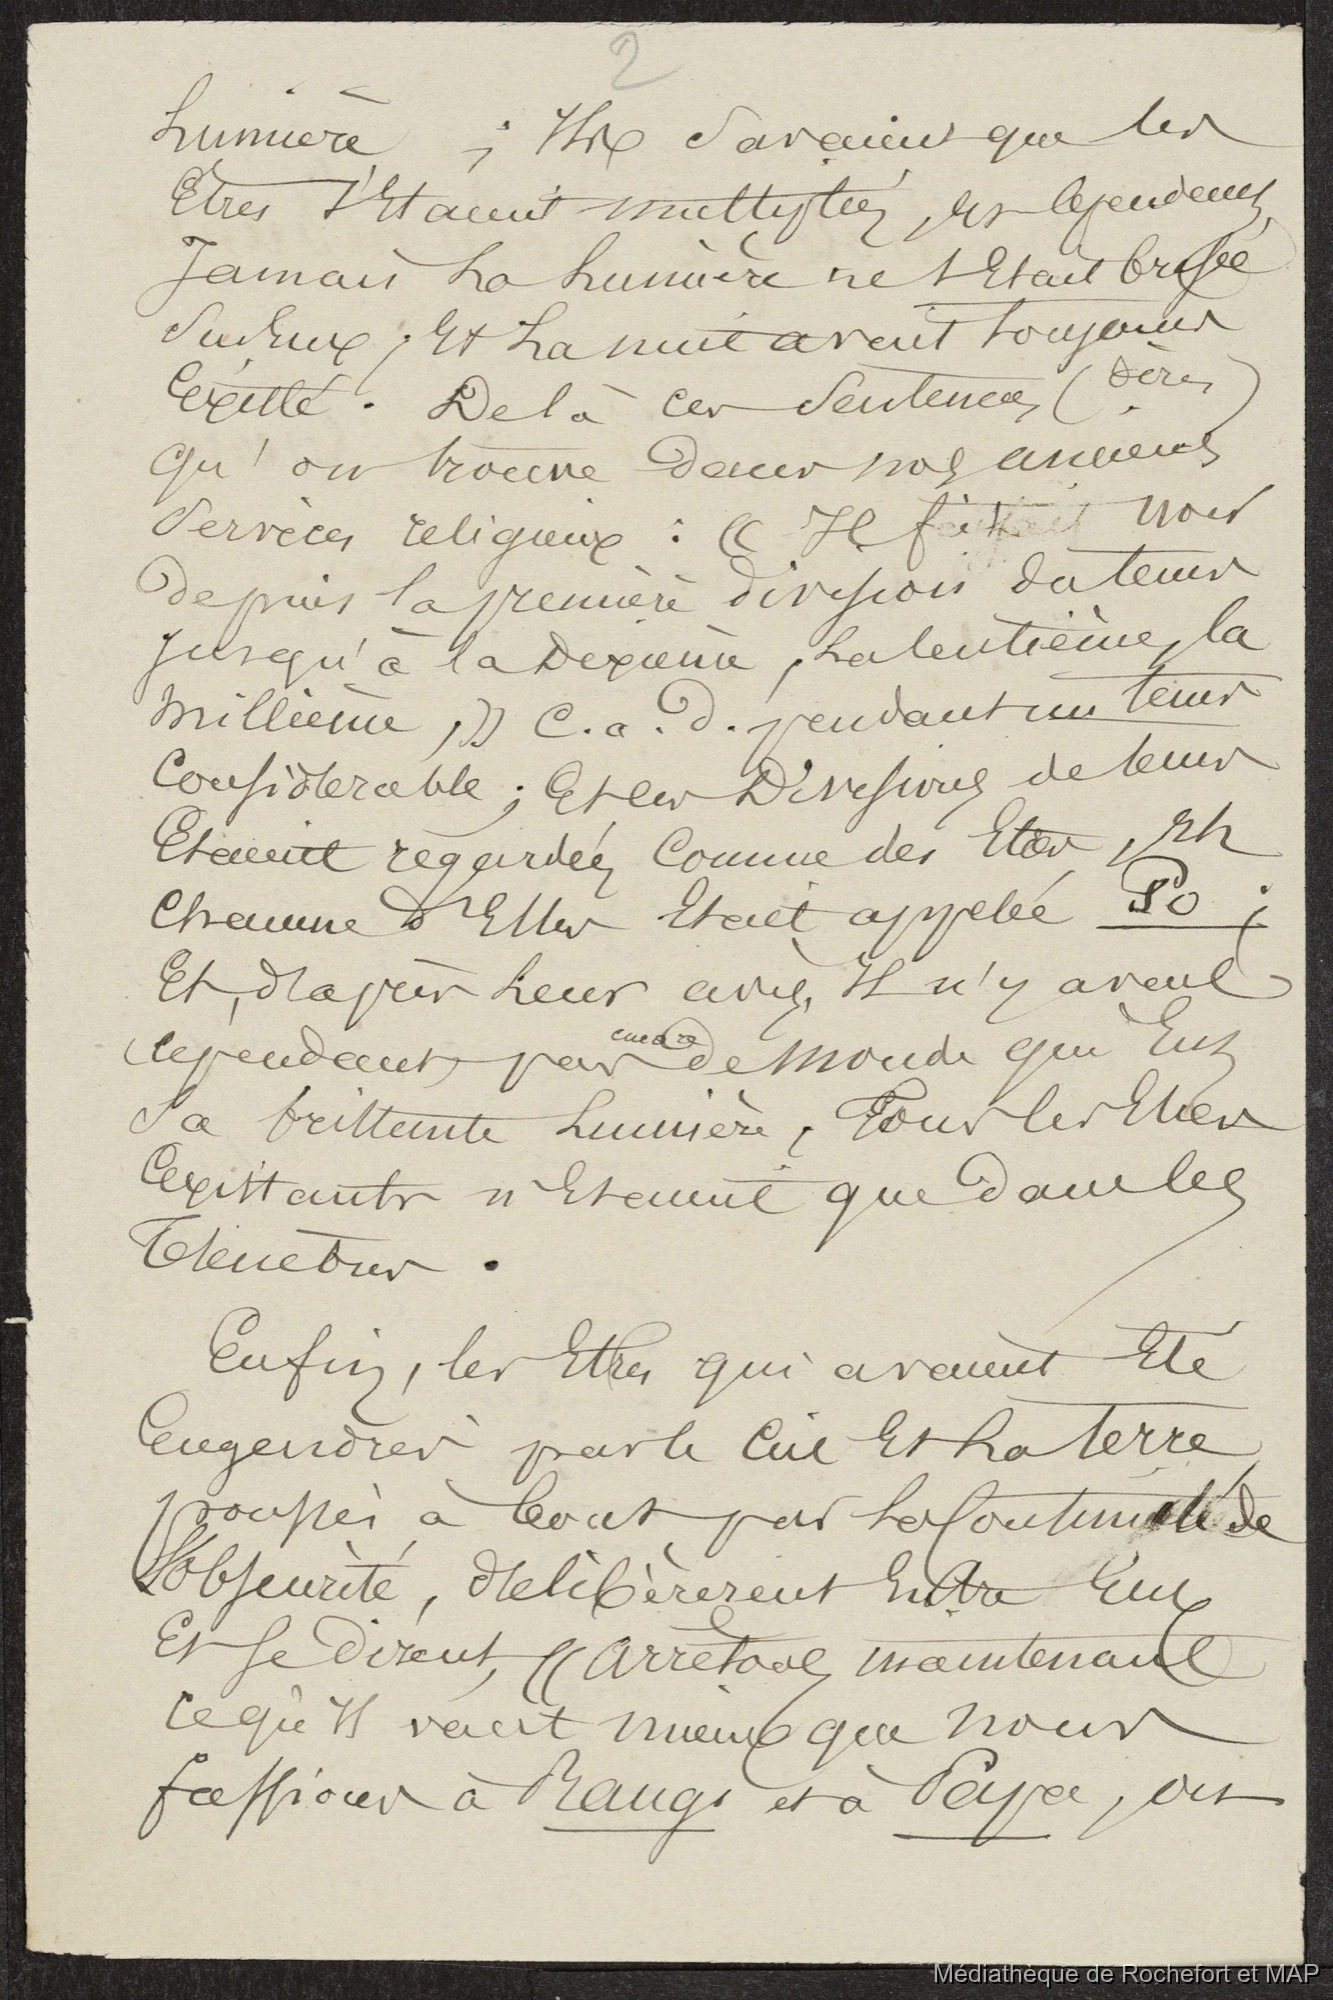 2
Lumière ; Ils Savaient que les
Êtres s'Etaient multipliés, Et cependant,
Jamais La Lumière ne s'Etait brisée
Sur Eux, Et La nuit avait toujours
Existé. De là ces Sentences (vères)
qu'on trouve dans nos anciens
Services religieux : « Il faisait noir
Depuis la première division du tems
Jusqu'à la Dixième, La Centième, la
Millième, » C. a. D. pendant un tems
Considérable ; Et les Divisions de tems
Etaient regardées Comme des Etres, Et
Chacune d'Elles Etait appelée Po ;
Et, d'après Leur avis, Il n'y avait
cependant pas encore de Monde qui Eut
Sa brillante Lumière, Tous les Etres
Existants n'Etaient que dans les
Ténèbres.
Enfin, les Etres qui avaient Eté
Engendrés par le Ciel Et La Terre,
poussés à bout par La Continuité de
L'obscurité, délibérèrent Entre Eux
Et se dirent, « Arrêtons maintenant
ce qu'Il vaut mieux que nous
fassions à Rangi et à Papa, ou
Médiathèque de Rochefort et MAP